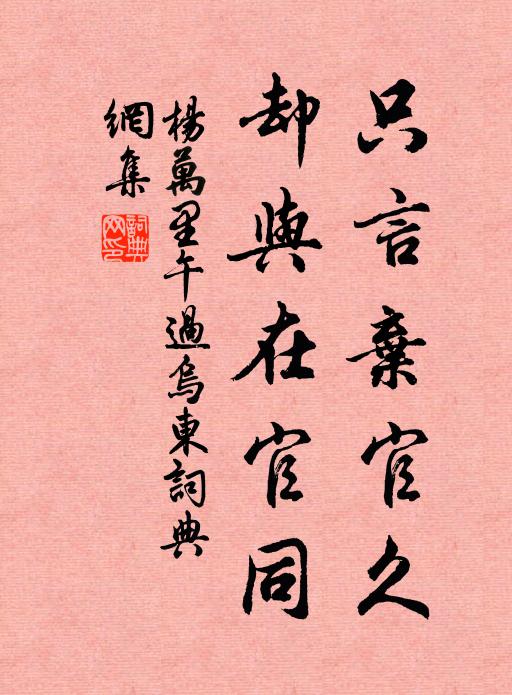 只言棄官久
却與在官同
楊萬里午過烏東詞典
網集
詞典網印